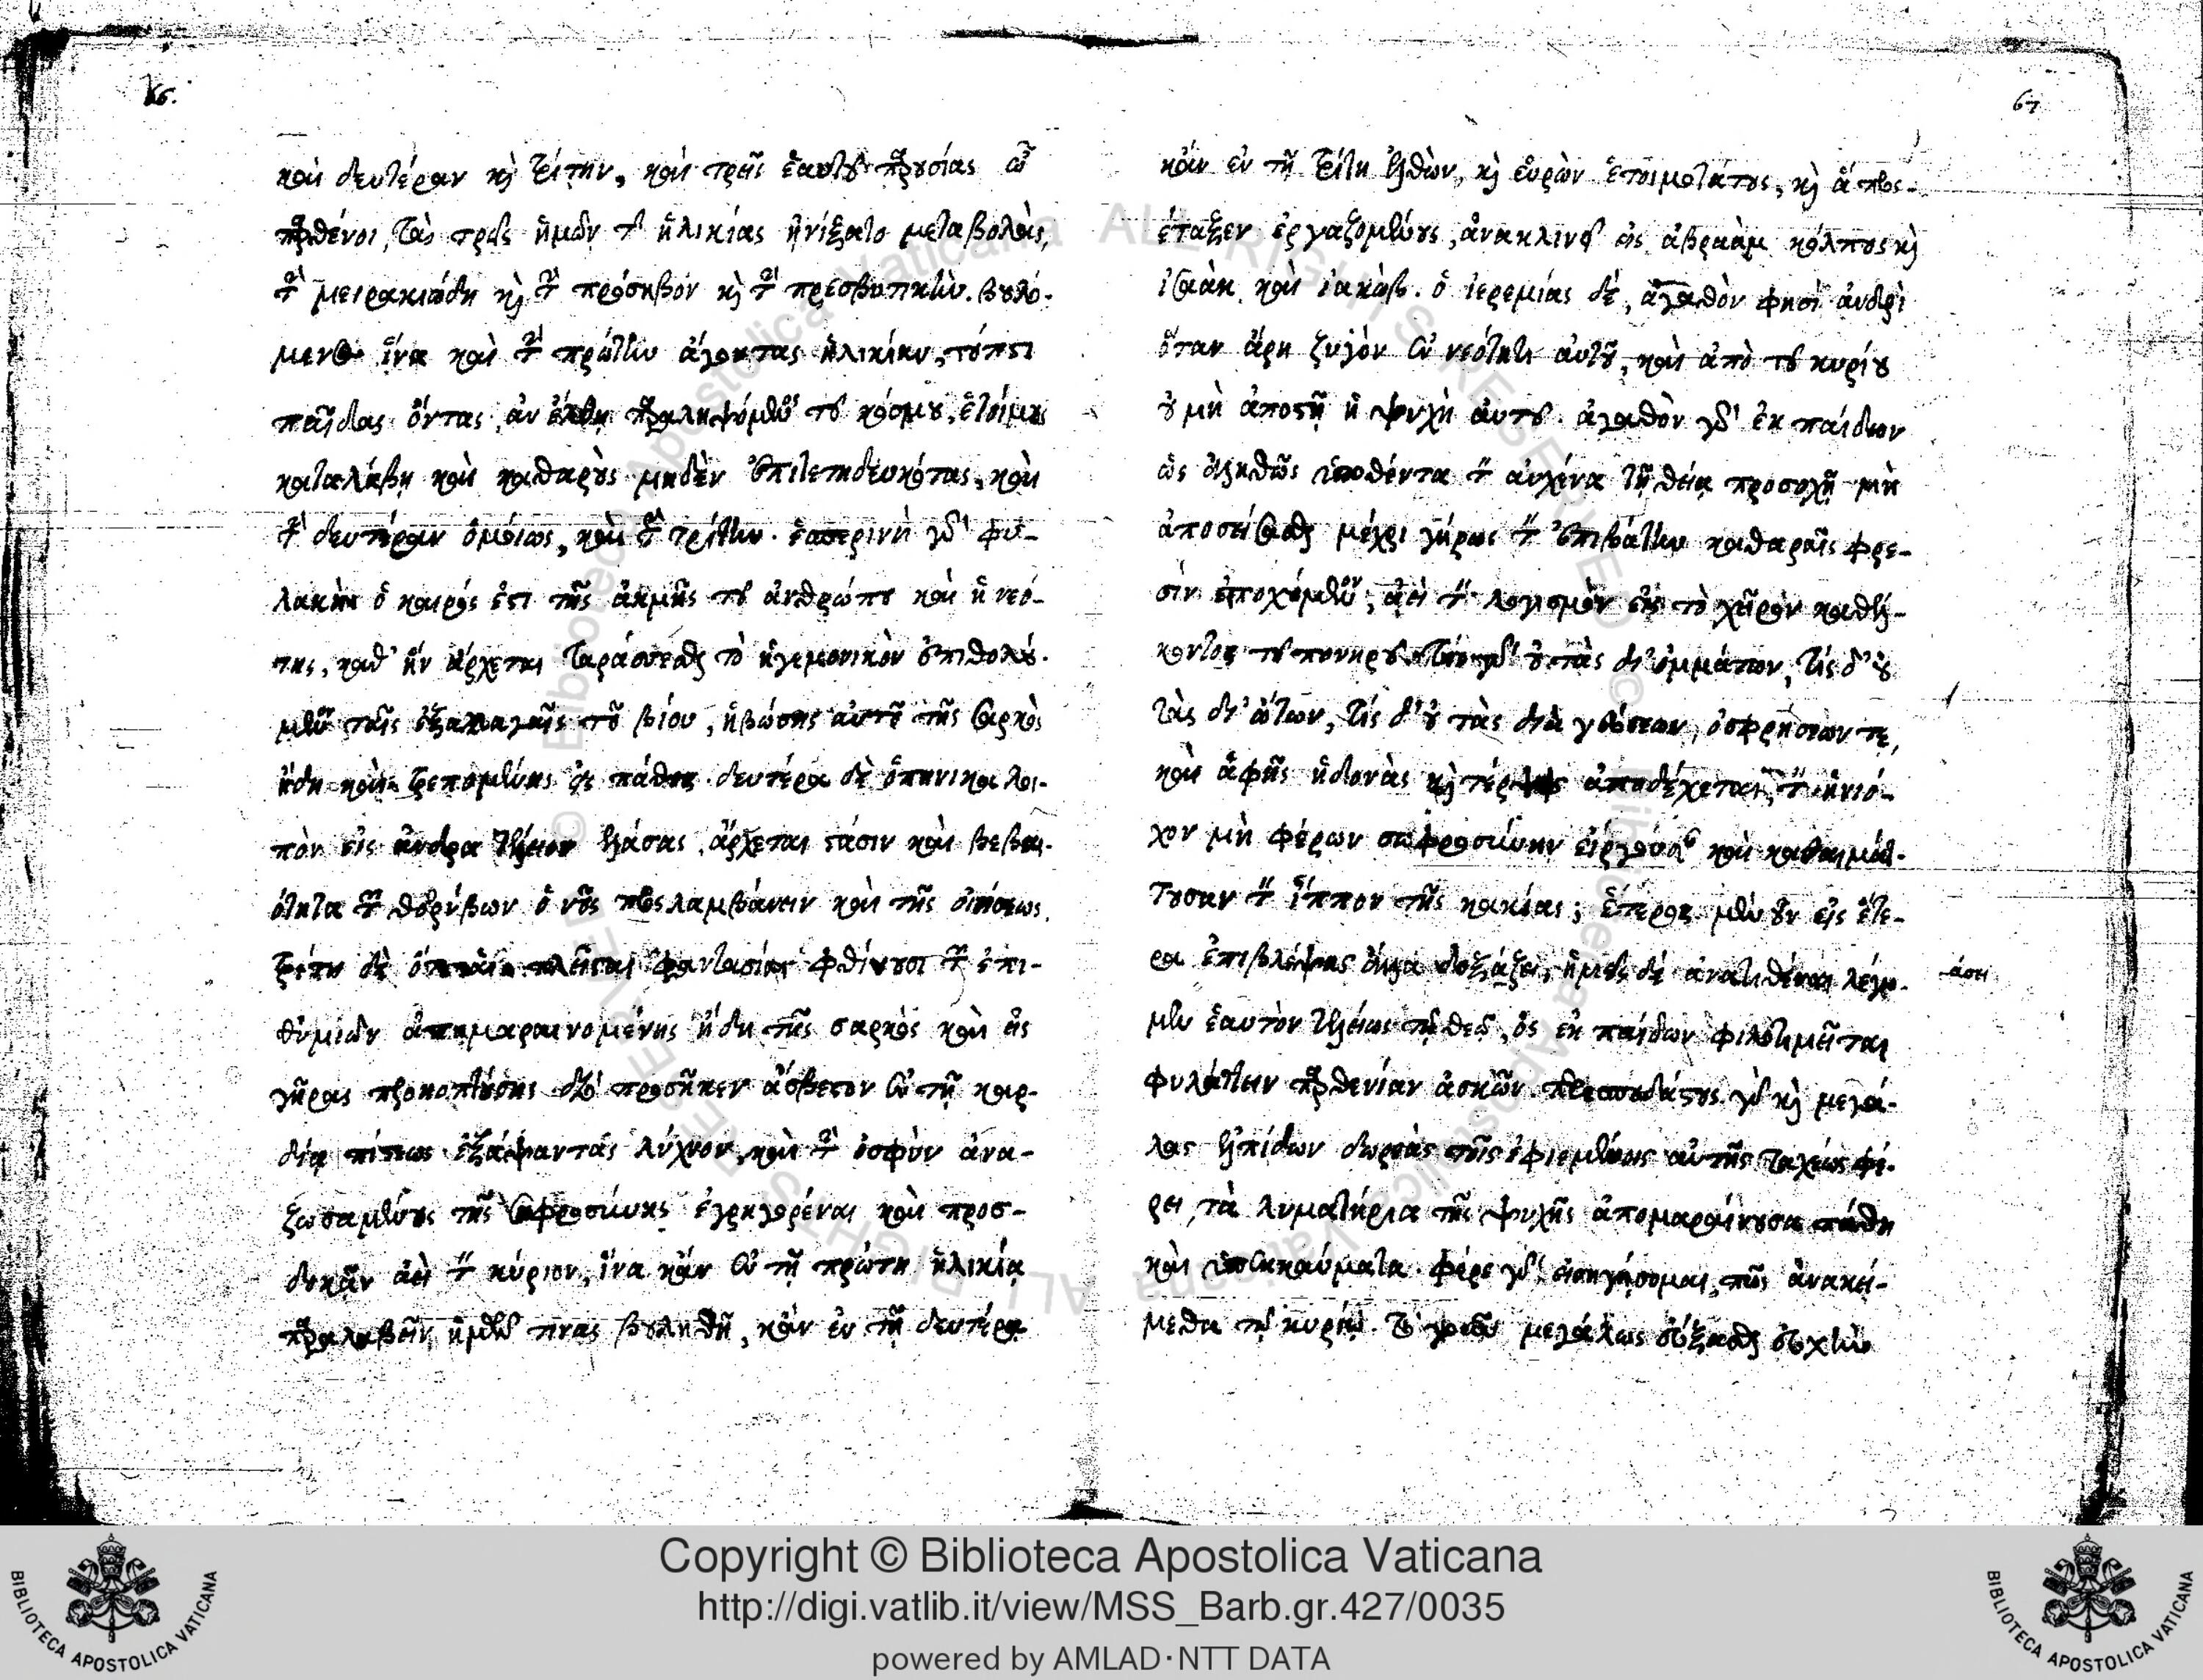 66.
καὶ δευτέραν κὴ τρίτην, καὶ τρεῖς ἑαυτοῦ παρουσίας ὦ
παρθένοι, τὰς τρεῖς ἡμῶν τῆς ἡλικίας ἠνίξατο μεταβολὰς,
τὴν μειρακιώδη κὴ τὴν πρόσηβον κὴ τὴν πρεσβυτικὴν. βουλό-
μενος ἵνα καὶ τὴν πρώτην ἄγοντας ἡλικίαν, τούτέστι
παῖδας ὄντας, ἂν ἔλθῃ παραληψόμενος τοῦ κόσμου, ἑτοίμους
καταλάβῃ καὶ καθαροὺς μηδὲν ἐπιτετηδευκότας, καὶ
τὴν δευτέραν ὁμοίως, καὶ τὴν τρίτην. ἑσπερινὴ γὰρ φυ-
λακὴ ὁ καιρός ἐστι τῆς ἀκμῆς τοῦ ἀνθρώπου καὶ ἡ νεό-
της, καθ' ἣν ἄρχεται ταράσσεσθαι τὸ ἡγεμονικὸν ἐπιθολού-
μενον ταῖς ἐξαλλαγαῖς τοῦ βίου, ἡβώσης αὐτοῦ τῆς σαρκὸς
ἤδη καὶ τρεπομένης εἰς πάθος. δευτέρα δὲ ὁπηνίκα λοι-
πὸν εἰς ἄνδρα τέλειον ἐλάσας, ἄρχεται στάσιν καὶ βεβαι-
ότητα τῶν θορύβων ὁ νοῦς προσλαμβάνειν καὶ τῆς οἰήσεως.
τρίτη δὲ ὁπόταν αἱ πλεῖσται φαντασίαι φθίνουσι τῶν ἐπι-
θυμιῶν ἀπομαραινομένης ἤδη τῆς σαρκὸς καὶ εἰς
γῆρας προκοπτούσης. διὸ προσῆκεν ἄσβεστον ἐν τῇ καρ-
δίᾳ πίστεως ἐξάψαντας λύχνον, καὶ τὴν ὀσφὺν ἀνα-
ζωσαμένους τῆς σωφροσύνης ἐγρηγορέναι καὶ προσ-
δοκᾶν ἀεὶ τὸν κύριον, ἵνα κἂν ἐν τῇ πρώτῃ ἡλικίᾳ
παραλαβεῖν ἡμῶν τινας βουληθῇ, κἂν ἐν τῇ δευτέρᾳ
67
κἂν ἐν τῇ τρίτῃ ἐλθὼν, κὴ εὑρὼν ἑτοιμοτάτους, κὴ ἃ προς-
έταξεν ἐργαζομένους, ἀνακλινεῖ εἰς ἀβραὰμ κόλπους κὴ
ἰσαὰκ καὶ ἰακώβ. ὁ ἱερεμίας δὲ, ἀγαθὸν φησὶ ἀνδρὶ
ὅταν ἄρῃ ζυγὸν ἐν νεότητι αὐτοῦ, καὶ ἀπὸ τοῦ κυρίου
οὐ μὴ ἀποστῇ ἡ ψυχὴ αὐτοῦ. ἀγαθὸν γὰρ ἐκ παίδων
ὡς ἀληθῶς ὑποθέντα τὸν αὐχένα τῇ θείᾳ προσοχῇ μὴ
ἀποσείσασθαι μέχρι γήρως τὸν ἐπιβάτην καθαραῖς φρε-
σὶν ἐποχούμενον, ἀεὶ τὸν λογισμὸν εἰς τὸ χεῖρον καθέλ-
κοντος τοῦ πονηροῦ. τίς γὰρ οὐ τὰς δι' ὀμμάτων, τίς δ' οὐ
τὰς δι' ὤτων, τίς δ' οὐ τὰς διὰ γεύσεων, ὀσφρήσεων τε,
καὶ ἁφῆς ἡδονὰς κὴ τέρψεις ἀποδέχεται, τὸν ἡνίο-
χον μὴ φέρων σωφροσύνην εἴργουσαν καὶ καθαιμάτ-
τουσαν τὸν ἵππον τῆς κακίας; ἕτερος μὲν οὖν εἰς ἕτε-
ρα ἐπιβλέψας δόξάξει, ἡμεῖς δὲ ἀνατιθέναι λέγο-
άσει
μεν ἑαυτὸν τελείως τῷ θεῷ, ὃς ἐκ παίδων φιλοτιμεῖται
φυλάττειν παρθενίαν ἀσκῶν. γὰρ κὴ μεγά-
λας ἐλπίδων δωρεὰς τοῖς ἐφιεμένοις αὐτῆς ταχέως φέ-
ρει, τὰ λυματήρια τῆς ψυχῆς ἀπομαραίνουσα πάθη
καὶ ὑπεκκαύματα. φέρε γὰρ, εἰσηγήσομαι, πῶς ἀνακεί-
μεθα τῷ κυρίῳ. μεγάλως εὔξασθαι εὐχὴν